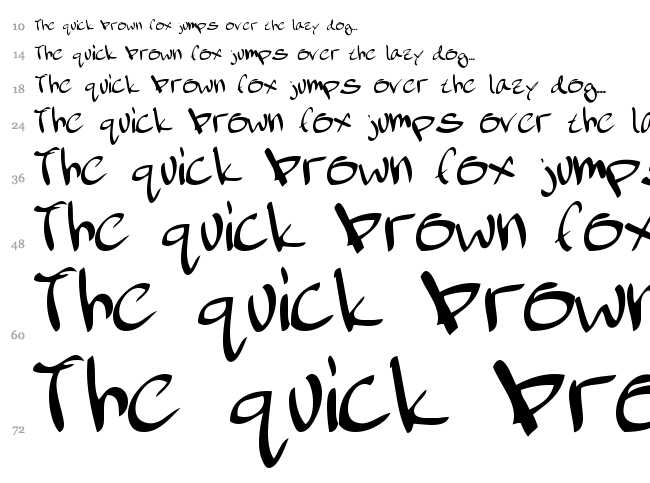 10 The quick brown fox jumps over the lazy dog...
14 The quick brown fox jumps over the lazy dog...
18 The quick brown fox jumps over the lazy dog...
24 The quick brown fox jumps over the la
36 The quick brown fox jumps
48 The quick brown fox
60 The quick brown
72 The quick bro